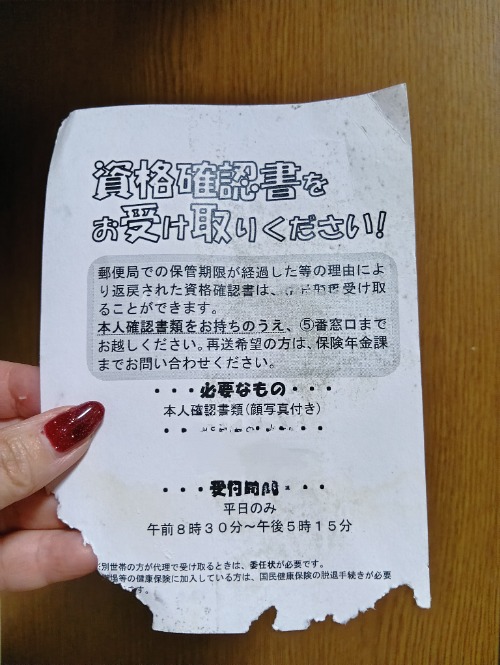 資格確認書を
お受け取りください!
郵便局での保管期限が経過した等の理由によ
り返戻された資格確認書は、受け取
ることができます。
本人確認書類をお持ちのうえ、⑤番窓口まで
お越しください。再送希望の方は、保険年金課
までお問い合わせください。
・・・必要なもの・・・
本人確認書類(顔写真付き)
・・・受付時間・・・
平日のみ
午前8時30分～午後5時15分
別世帯の方が代理で受け取るときは、委任状が必要です。
場等の健康保険に加入している方は、国民健康保険の脱退手続きが必要
です。